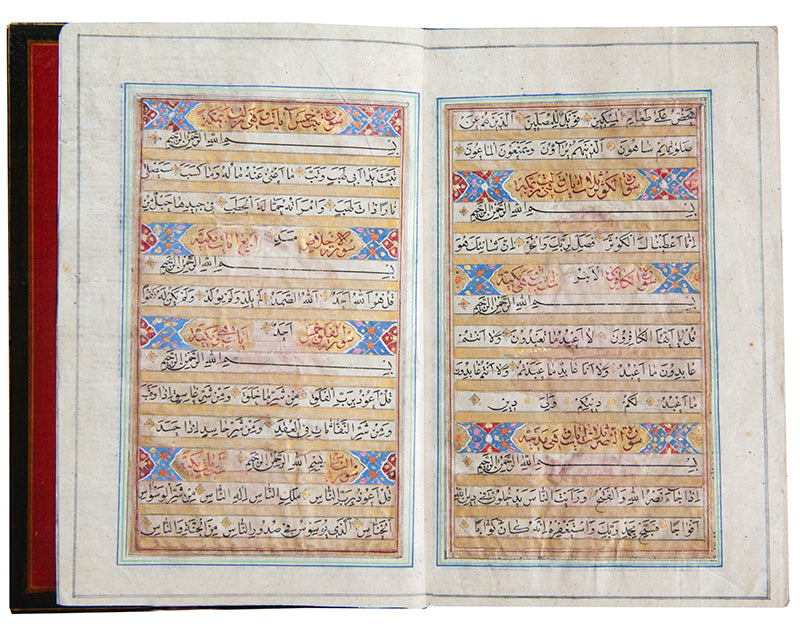 يحض على طعام المسكين فويل للمصلين الذين هم عن
صلوتهم ساهون الذين هم يراؤن ويمنعون الماعون
سورة الكوثر ثلاث ايات وهي مكية
بسم الله الرحمن الرحيم
انا اعطيناك الكوثر فصل لربك وانحر ان شانئك هو
سورة الكافرون الابتر ست ايات وهي مكية
بسم الله الرحمن الرحيم
قل يا ايها الكافرون لا اعبد ما تعبدون ولا انتم
عابدون ما اعبد ولا انا عابد ما عبدتم ولا انتم عابدون
ما اعبد لكم دينكم ولي دين
سورة النصر ثلاث ايات وهي مدنية
بسم الله الرحمن الرحيم
اذا جاء نصر الله والفتح ورايت الناس يدخلون في دين الله
افواجا فسبح بحمد ربك واستغفره انه كان توابا
سورة تبت خمس ايات وهي مكية
بسم الله الرحمن الرحيم
تبت يدا ابي لهب وتب ما اغنى عنه ماله وما كسب سيصلى
نارا ذات لهب وامراته حمالة الحطب في جيدها حبل من
سورة الاخلاص مسد اربع ايات مكية
بسم الله الرحمن الرحيم
قل هو الله احد الله الصمد لم يلد ولم يولد ولم يكن له كفوا
سورة الفلق خمس احد ايات مكية
بسم الله الرحمن الرحيم
قل اعوذ برب الفلق من شر ما خلق ومن شر غاسق اذا وقب
ومن شر النفاثات في العقد ومن شر حاسد اذا حسد
سورة الناس بسم الله الرحمن الرحيم ست ايات
قل اعوذ برب الناس ملك الناس اله الناس من شر الوسواس
الخناس الذي يوسوس في صدور الناس من الجنة والناس